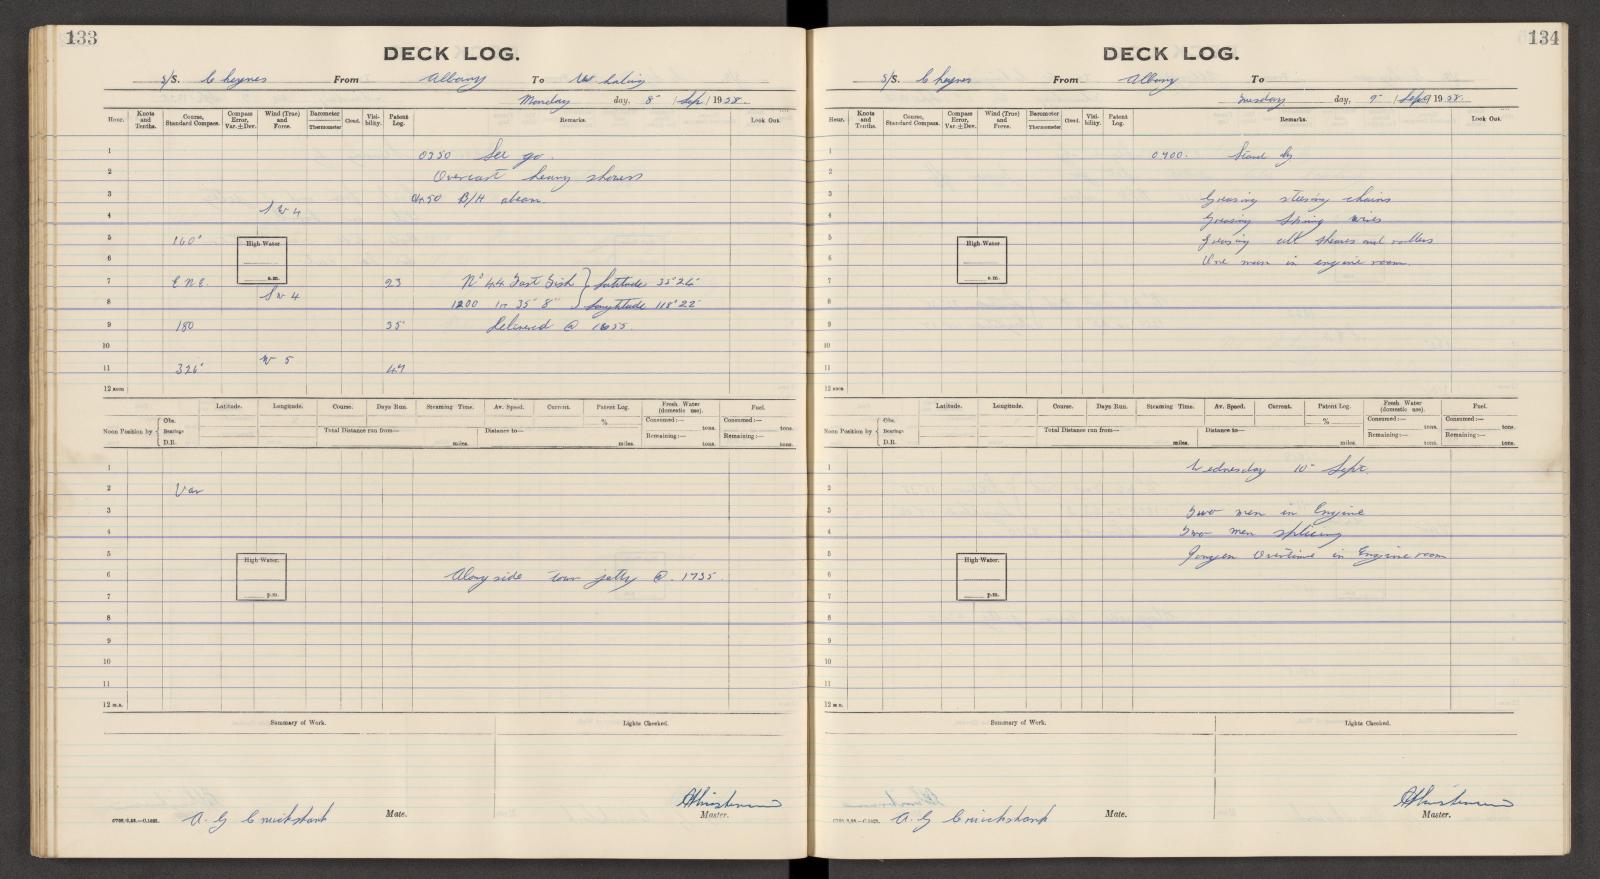 133
DECK LOG.
S/S. Cheynes From Albany To Whaling
Monday day, 8" / Sept / 1958.
Hour. Knots and Tenths. Course, Standard Compass. Compass Error, Var.±Dev. Wind (True) and Force. Barometer Thermometer Cloud. Visibility. Patent Log. Remarks. Look Out.
1 0350 Let go.
2 Overcast heavy showers
3 0450 B/H abeam.
4 SW 4
5 160°
High Water a.m.
6
7 ENE. 23 No 44 Fast Fish } Latitude 35°24'
8 SW 4 1200 1m 35' 8" } Longtitude 118°22'
9 180 35 Delivered @ 1655.
10
11 W 5
326° 47
12 noon
Latitude. Longitude. Course. Days Run. Steaming Time. Av. Speed. Current. Patent Log. % Fresh Water (domestic use). Fuel.
Noon Position by { Obs. Bearings D.R. Total Distance run from— miles. Distance to— miles. Consumed:— tons. Remaining:— tons. Consumed:— tons. Remaining:— tons.
1
2 Var
3
4
5
High Water. p.m.
6 Alongside town jetty @ 1735.
7
8
9
10
11
12 m.n.
Summary of Work. Lights Checked.
A. G Cruickshank Mate. Master.
134
DECK LOG.
S/S. Cheynes From Albany To
Tuesday day, 9" / Sept / 1958.
Hour. Knots and Tenths. Course, Standard Compass. Compass Error, Var.±Dev. Wind (True) and Force. Barometer Thermometer Cloud. Visibility. Patent Log. Remarks. Look Out.
1 0400. Stand by
2
3 Greasing steering chains
4 Greasing Spring wires
5 Greasing all sheaves and rollers
High Water a.m.
6 One man in engine room.
7
8
9
10
11
12 noon
Latitude. Longitude. Course. Days Run. Steaming Time. Av. Speed. Current. Patent Log. % Fresh Water (domestic use). Fuel.
Noon Position by { Obs. Bearings D.R. Total Distance run from— miles. Distance to— miles. Consumed:— tons. Remaining:— tons. Consumed:— tons. Remaining:— tons.
1 Wednesday 10" Sept.
2
3 Two men in Engine
4 Two men splicing
5 Overtime in Engine room
High Water. p.m.
6
7
8
9
10
11
12 m.n.
Summary of Work. Lights Checked.
A. G Cruickshank Mate. Master.